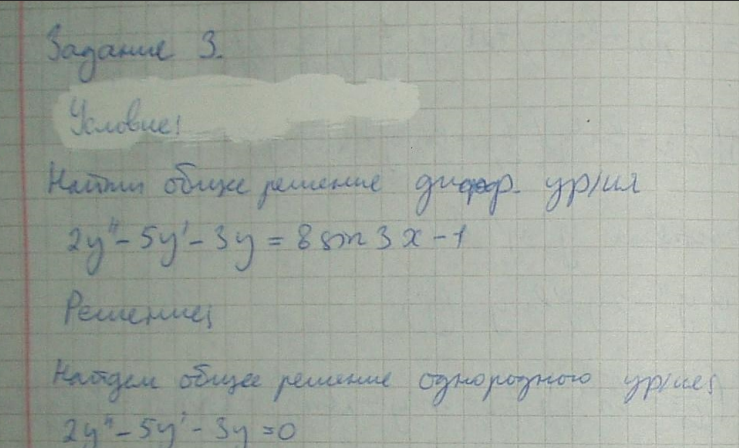 Задание 3.
Условие:
Найти общее решение дифф. ур/ия
2y" - 5y' - 3y = 8 sin 3x - 1
Решение:
Найдем общее решение однородного ур/ия:
2y" - 5y' - 3y = 0